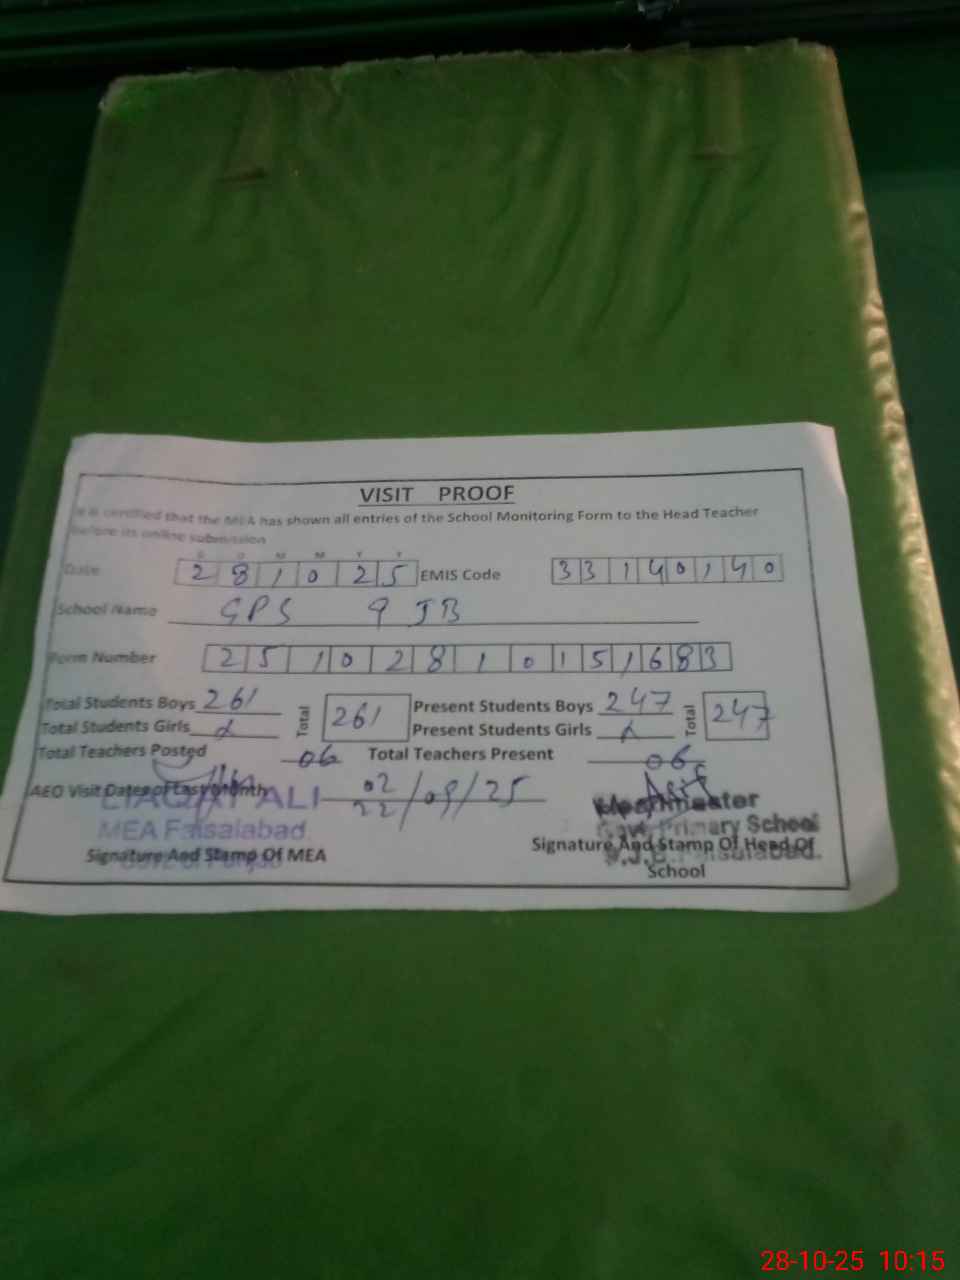 VISIT PROOF
It is certified that the MEA has shown all entries of the School Monitoring Form to the Head Teacher
before its online submission
D D M M Y Y
Date 2 8 1 0 2 5 EMIS Code 3 3 1 4 0 1 4 0
School Name GPS 9 JB
Form Number 2 5 1 0 2 8 1 0 1 5 1 6 8 3
Total Students Boys 261 Total 261 Present Students Boys 247 Total 247
Total Students Girls Present Students Girls
Total Teachers Posted 06 Total Teachers Present 06
AEO Visit Dates of Last Month 02 22/09/25
LIAQAT ALI
MEA Faisalabad
Signature And Stamp Of MEA
Headmaster
Govt. Primary School
Faisalabad.
Signature And Stamp Of Head Of
School
28-10-25 10:15